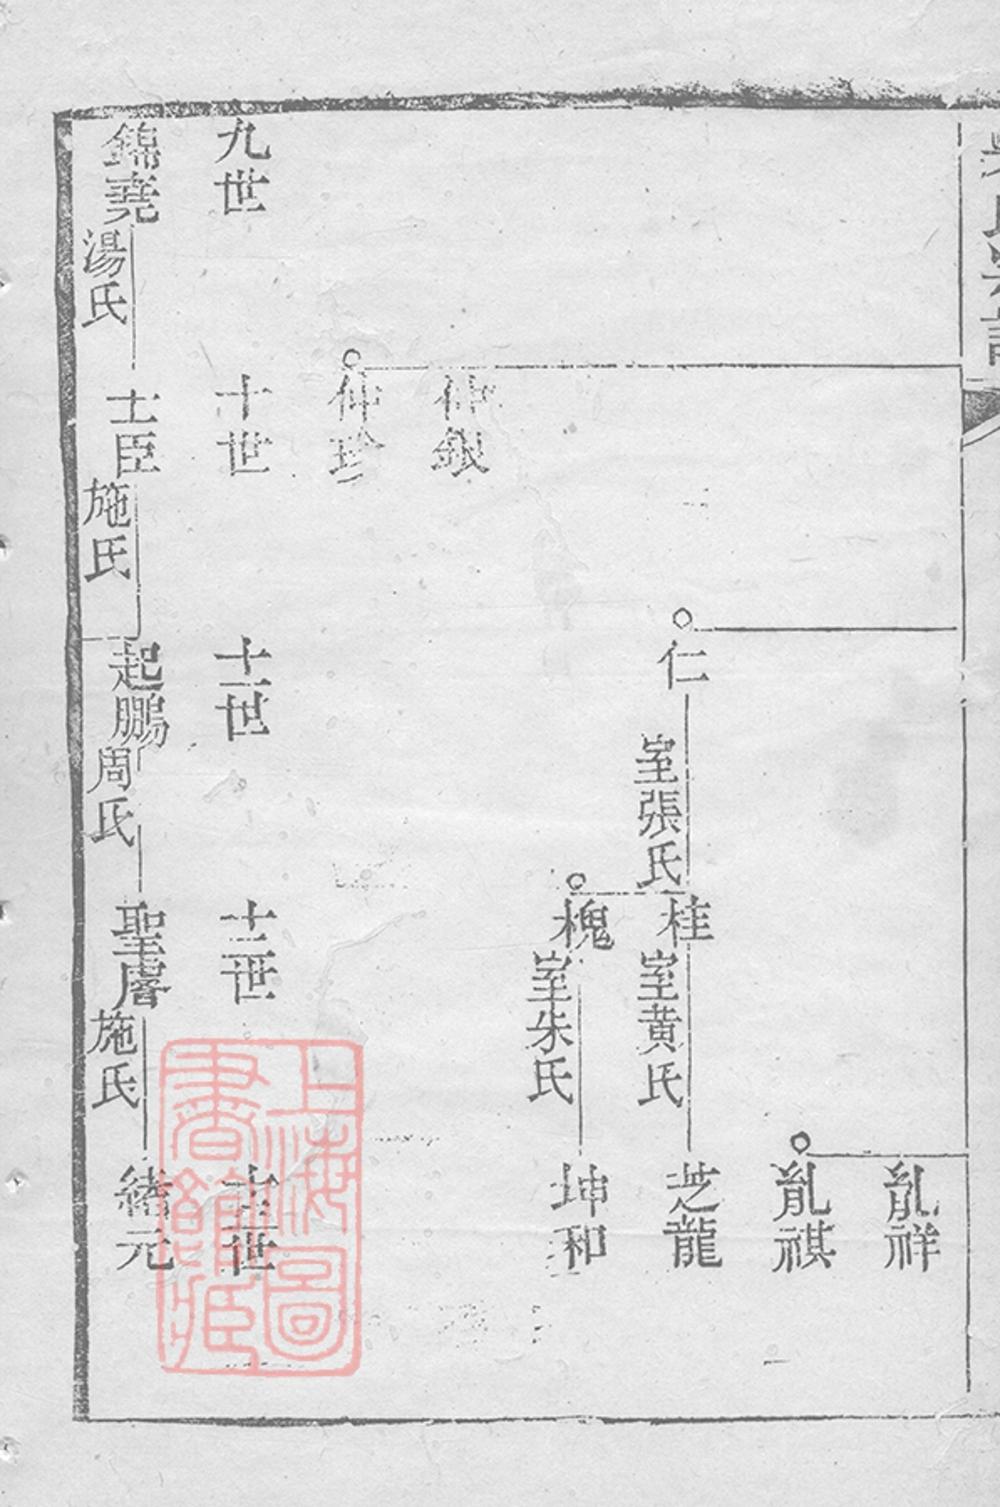 氏宗譜
胤祥
胤祺
仲銀
仲珍
仁
室張氏
桂
室黄氏
芝龍
槐
室朱氏
坤和
九世
十世
十一世
十二世
十三世
錦堯
湯氏
士臣
施氏
起鵬
周氏
聖
施氏
緒元
上海圖
書館藏